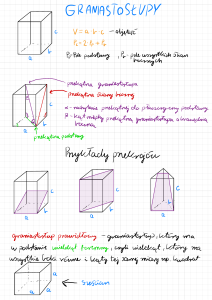 GRANIASTOSŁUPY
V = a · b · c - objętość
Pc = 2 · Pp + Pb
Pp - Pole podstawy, Pb - pole wszystkich ścian bocznych
przekątna graniastosłupa
przekątna ściany bocznej
α - nachylenie przekątnej do płaszczyzny podstawy
β - kąt między przekątną graniastosłupa a krawędzią boczną
przekątna podstawy
Przykłady przekrojów
graniastosłup prawidłowy - graniastosłup, który ma
w podstawie wielokąt foremny, czyli wielokąt, który ma
wszystkie boki równe i kąty tej samej miary np. kwadrat
sześcian
a
a
a